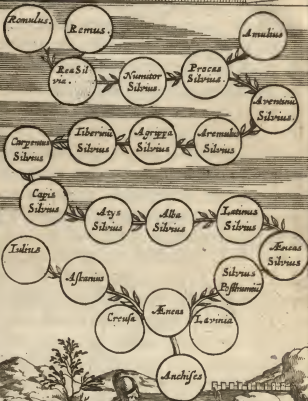 Romulus.
Remus.
Amulius
Rea Sil
via.
Numitor
Silvius.
Procas
Silvius.
Aventinũ
Silvius.
Carpentus
Silvius
Tiberinũ
Silvius.
Agrippa
Silvius.
Aremulus
Silvius.
Capis
Silvius
Atys
Silvius
Alba
Silvius
Latinus
Silvius
Æneas
Silvius
Iulius
Askanius
Silvius
Posthumiũ
Creusa
Æneas
Lavinia
Anchises